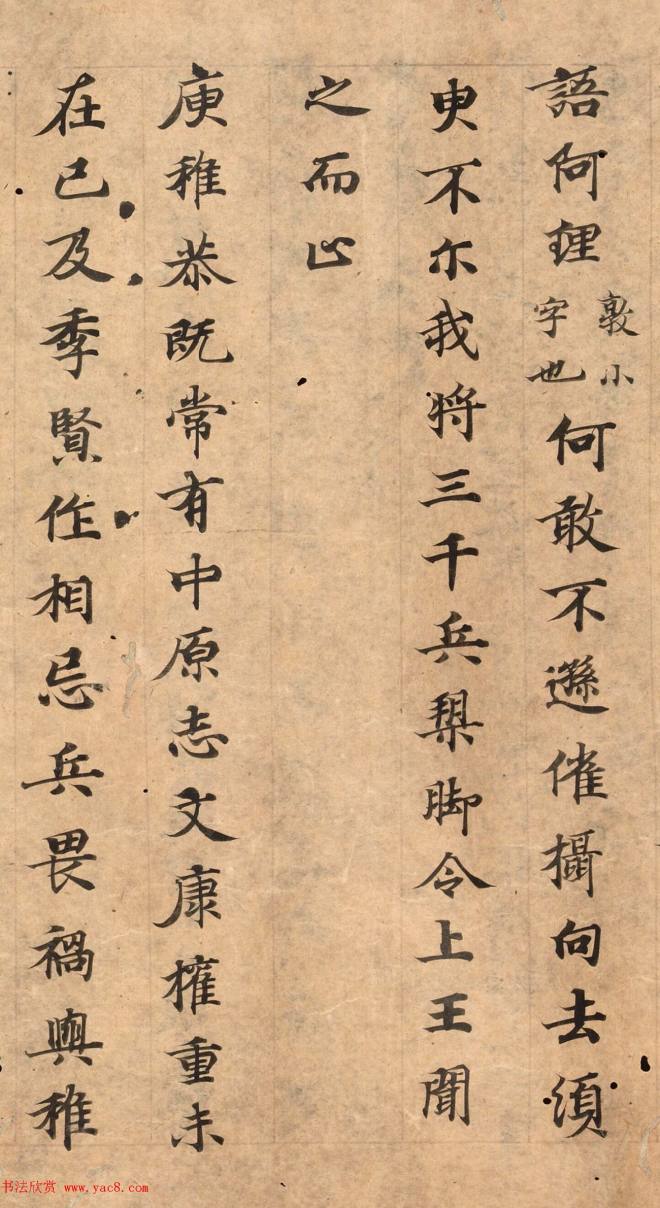 語何鋰敦小字也何敢不遜催攝向去須
臾不尒我將三千兵槊脚令上王聞
之而止
庾稚恭既常有中原志文康權重未
在己及季賢作相忌兵畏禍與稚
书法欣赏 www.yac8.com